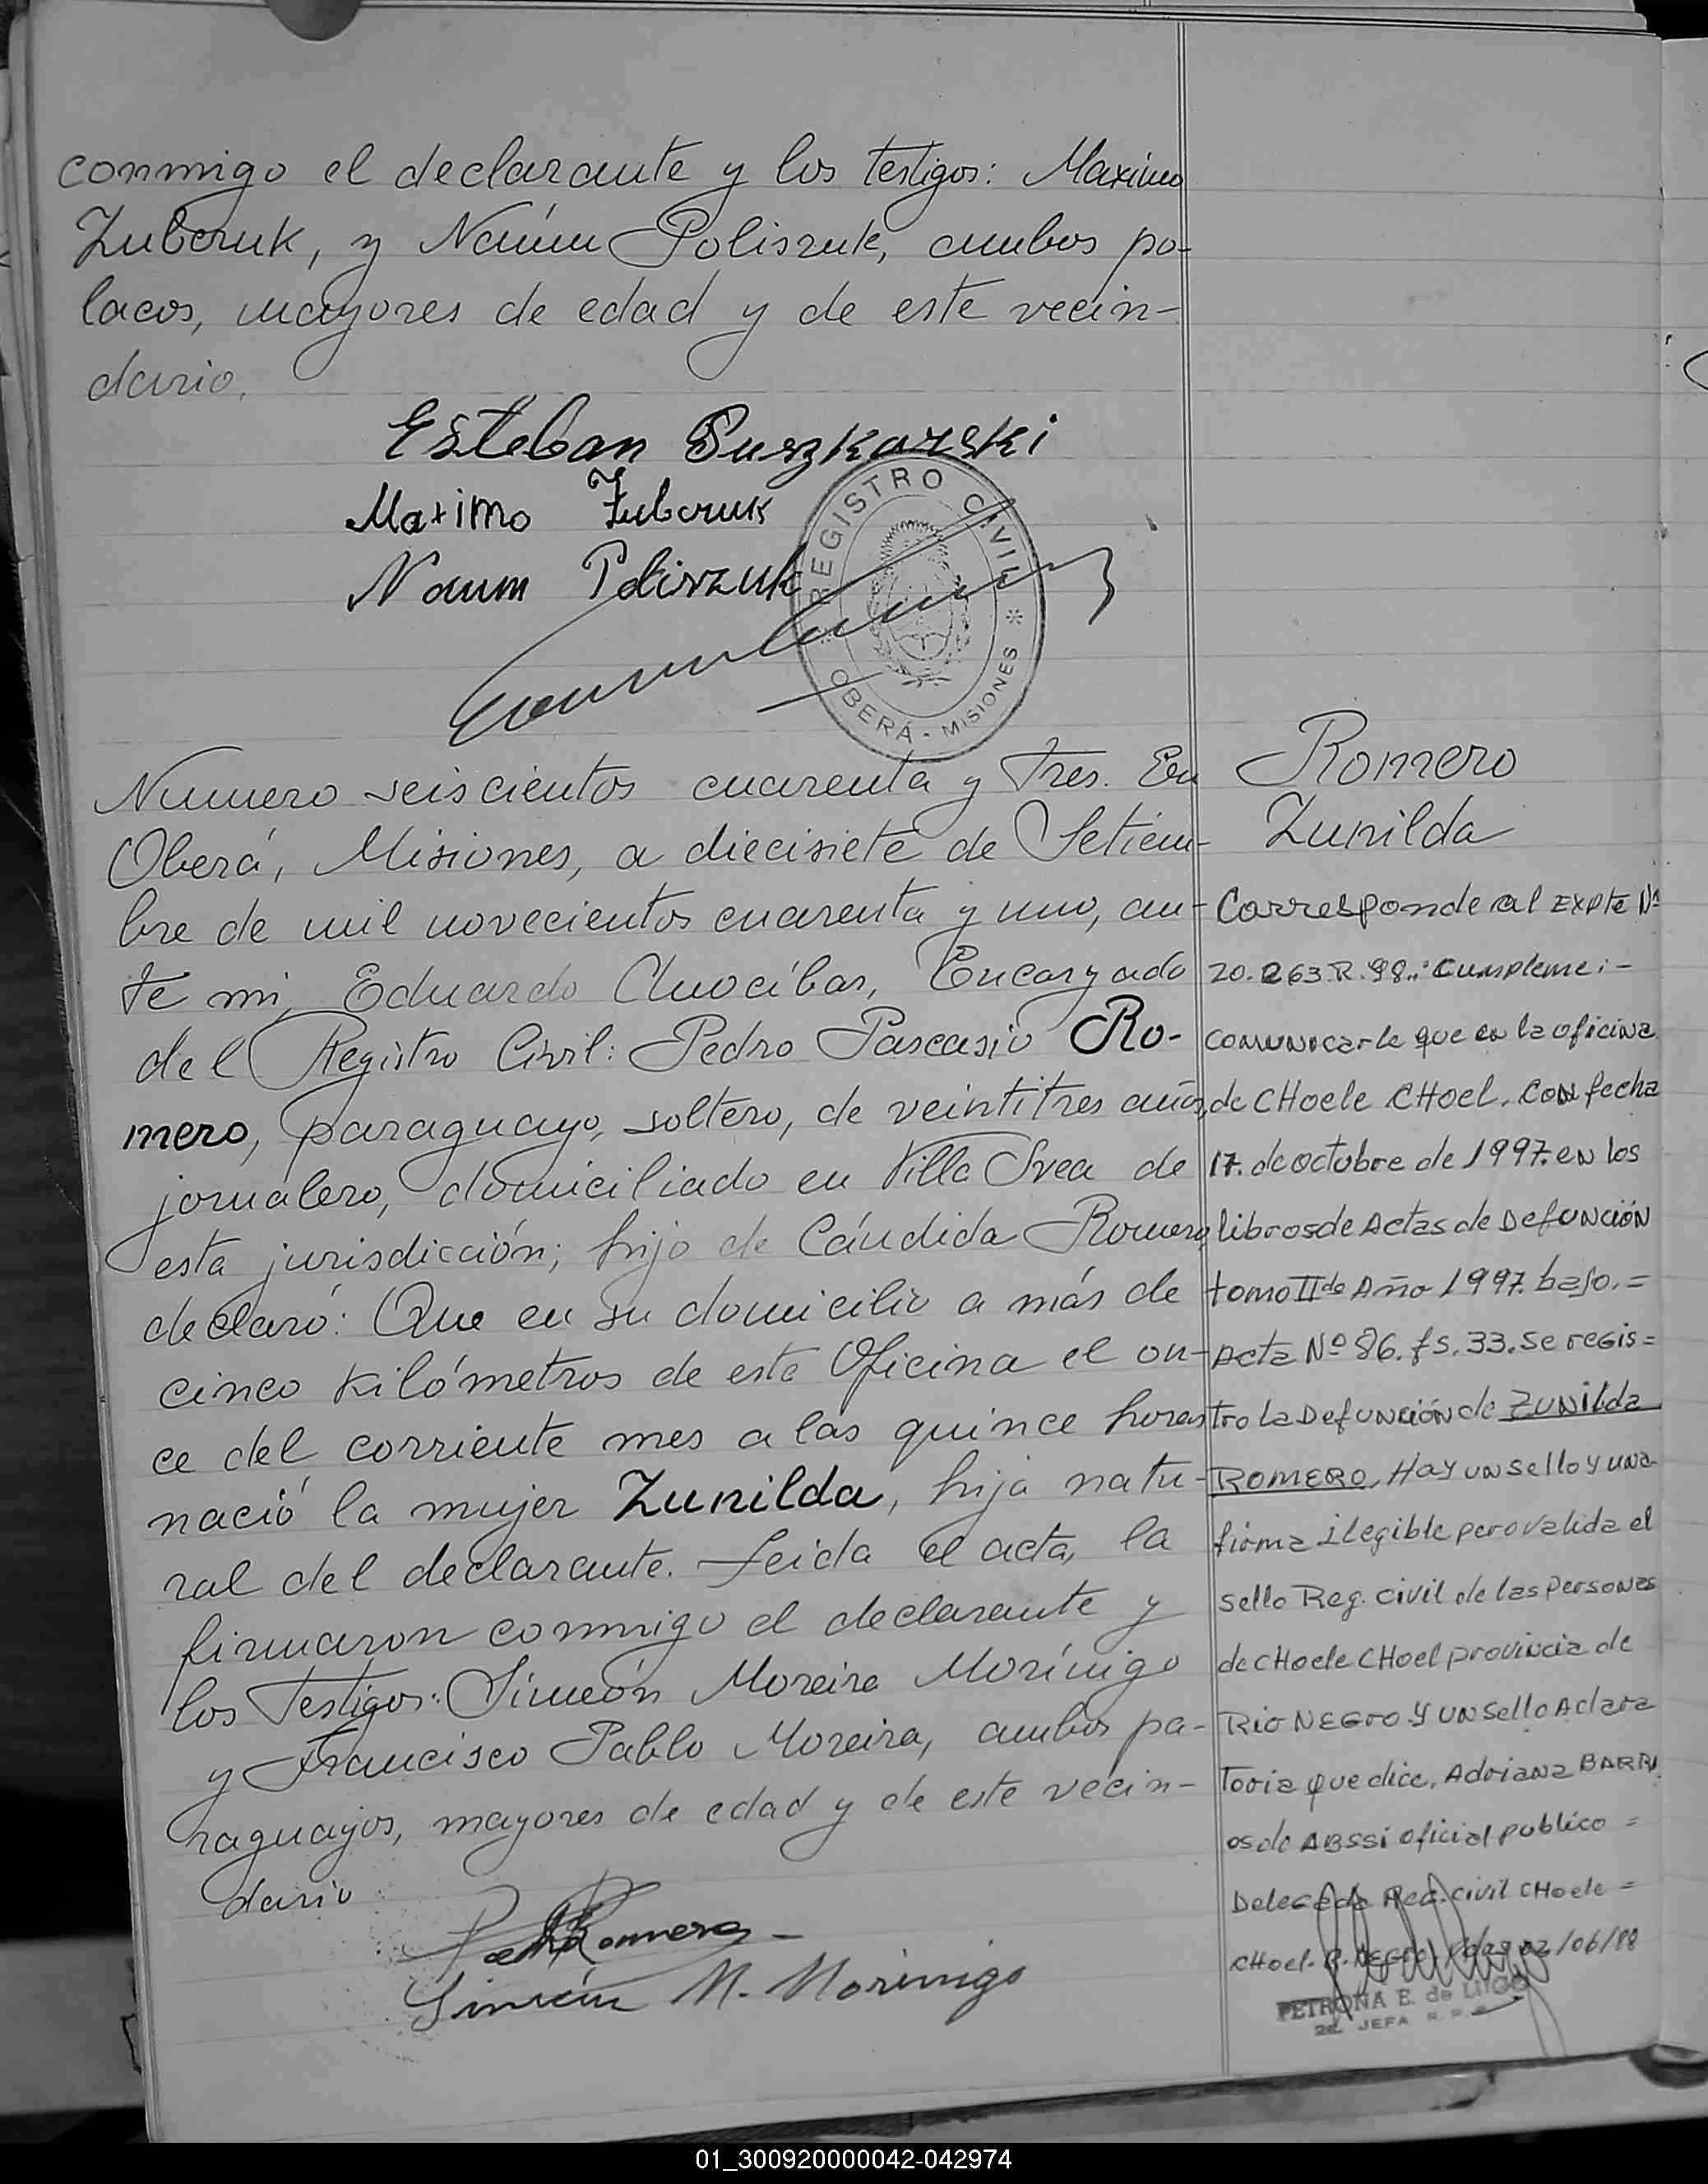 conmigo el declarante y los testigos: Maximo
Zubcruk, y Naúm Poliszuk, ambos po-
lacos, mayores de edad y de este vecin-
dario.
Esteban Puszkarski
Maximo Zubcruk
Naum Poliszuk
REGISTRO CIVIL
OBERÁ - MISIONES
Numero seiscientos cuarenta y tres. En
Oberá, Misiones, a diecisiete de Setiem-
bre de mil novecientos cuarenta y uno, an-
te mi, Eduardo Encargado
del Registro Civil: Pedro Pascasio Ro-
mero, paraguayo, soltero, de veintitres años,
jornalero, domiciliado en Villa Svea de
esta jurisdicción; hijo de Cándida Romero,
declaró: Que en su domicilio a más de
cinco kilómetros de esta Oficina el on-
ce del corriente mes a las quince horas
nació la mujer Zunilda, hija natu-
ral del declarante. Leida el acta, la
firmaron conmigo el declarante y
los testigos: Simeón Moreira Morínigo
y Francisco Pablo Moreira, ambos pa-
raguayos, mayores de edad y de este vecin-
dario
Romero
Simeón M. Morinigo
Romero
Zunilda
Corresponde al EXpte Nº
20.263.R.98. Cumpleme:-
comunicarle que en la oficina
de CHoele CHoel. CON fecha
17. de octubre de 1997. en los
libros de Actas de Defunción
tomo IIdo Año 1997. bajo. =
Acta Nº 86. fs. 33. se regis=
tro la Defunción de ZUNilda
ROMERO. Hay un sello y una
firma ilegible pero valida el
sello Reg. civil de las personas
de CHoele CHoel provincia de
Rio NEGro y un sello Aclara
toria que dice, Adriana BARRI
os de ABSSi oficial publico =
Delegada Reg. civil CHoele =
CHoel. R. NEGro. /06/98
PETRONA E. de LUGO
2da. JEFA R.P.
01_300920000042-042974